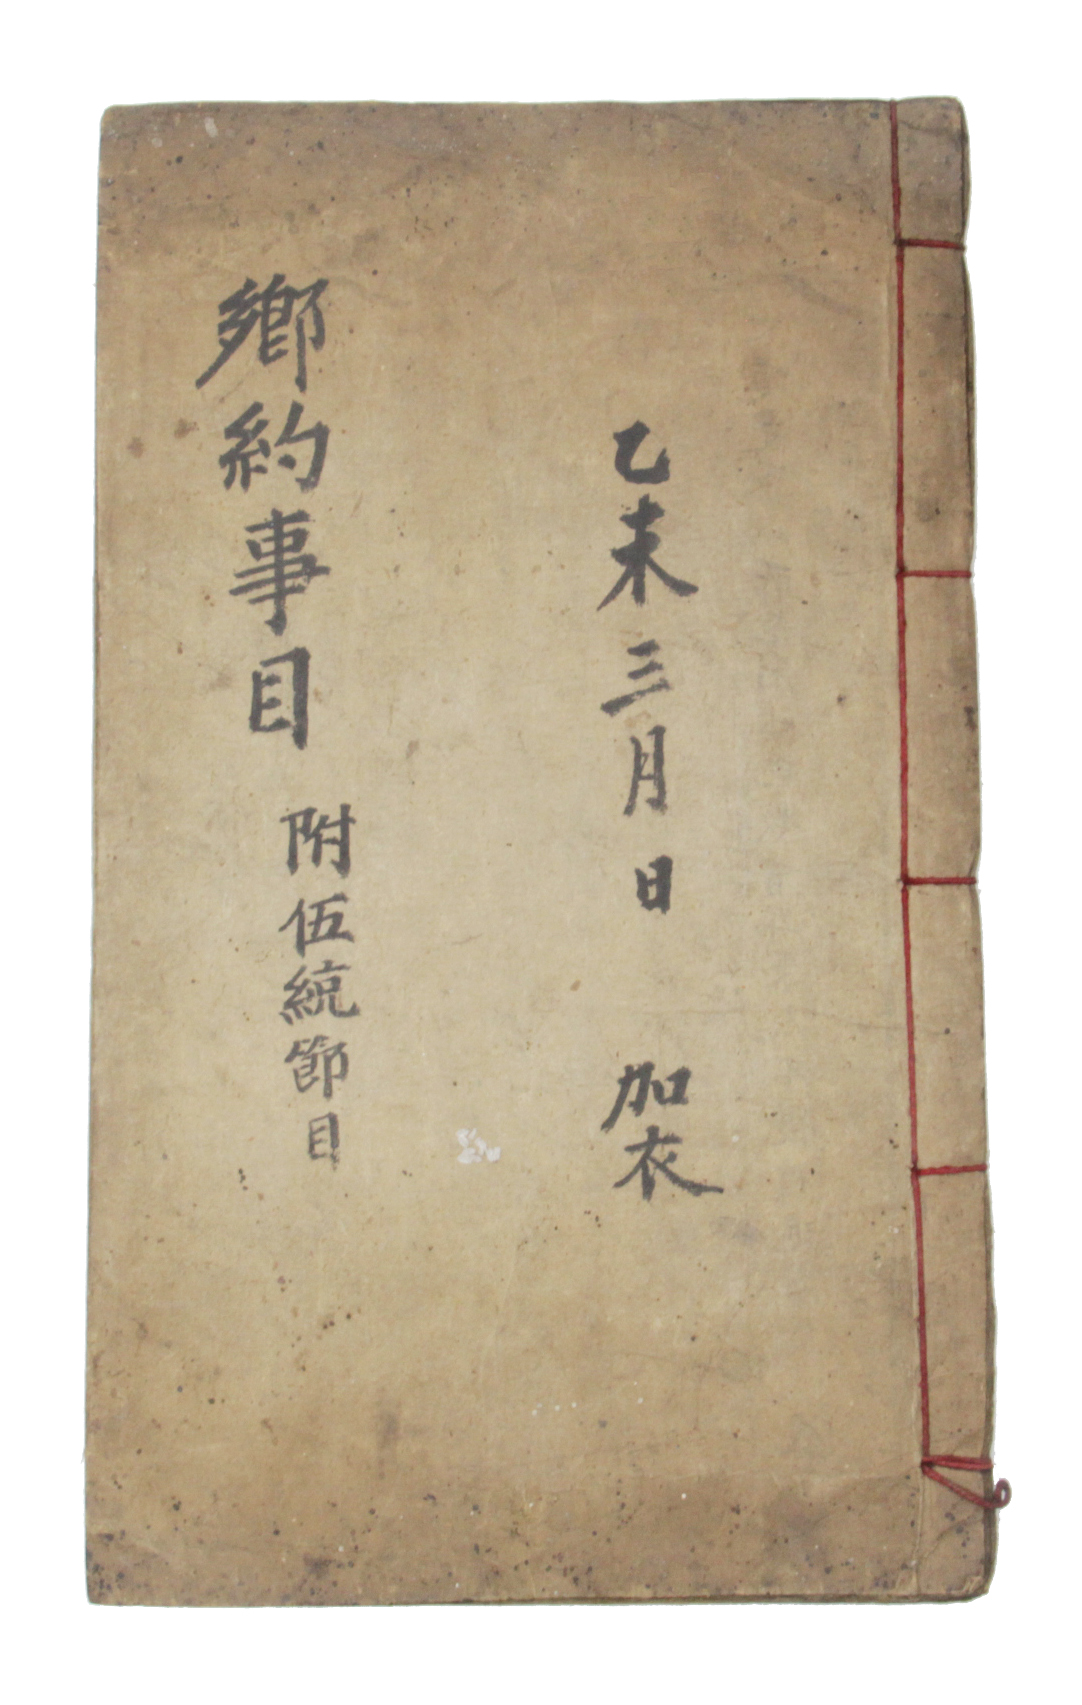 乙未三月 日 加衣
鄕約事目 附伍統節目